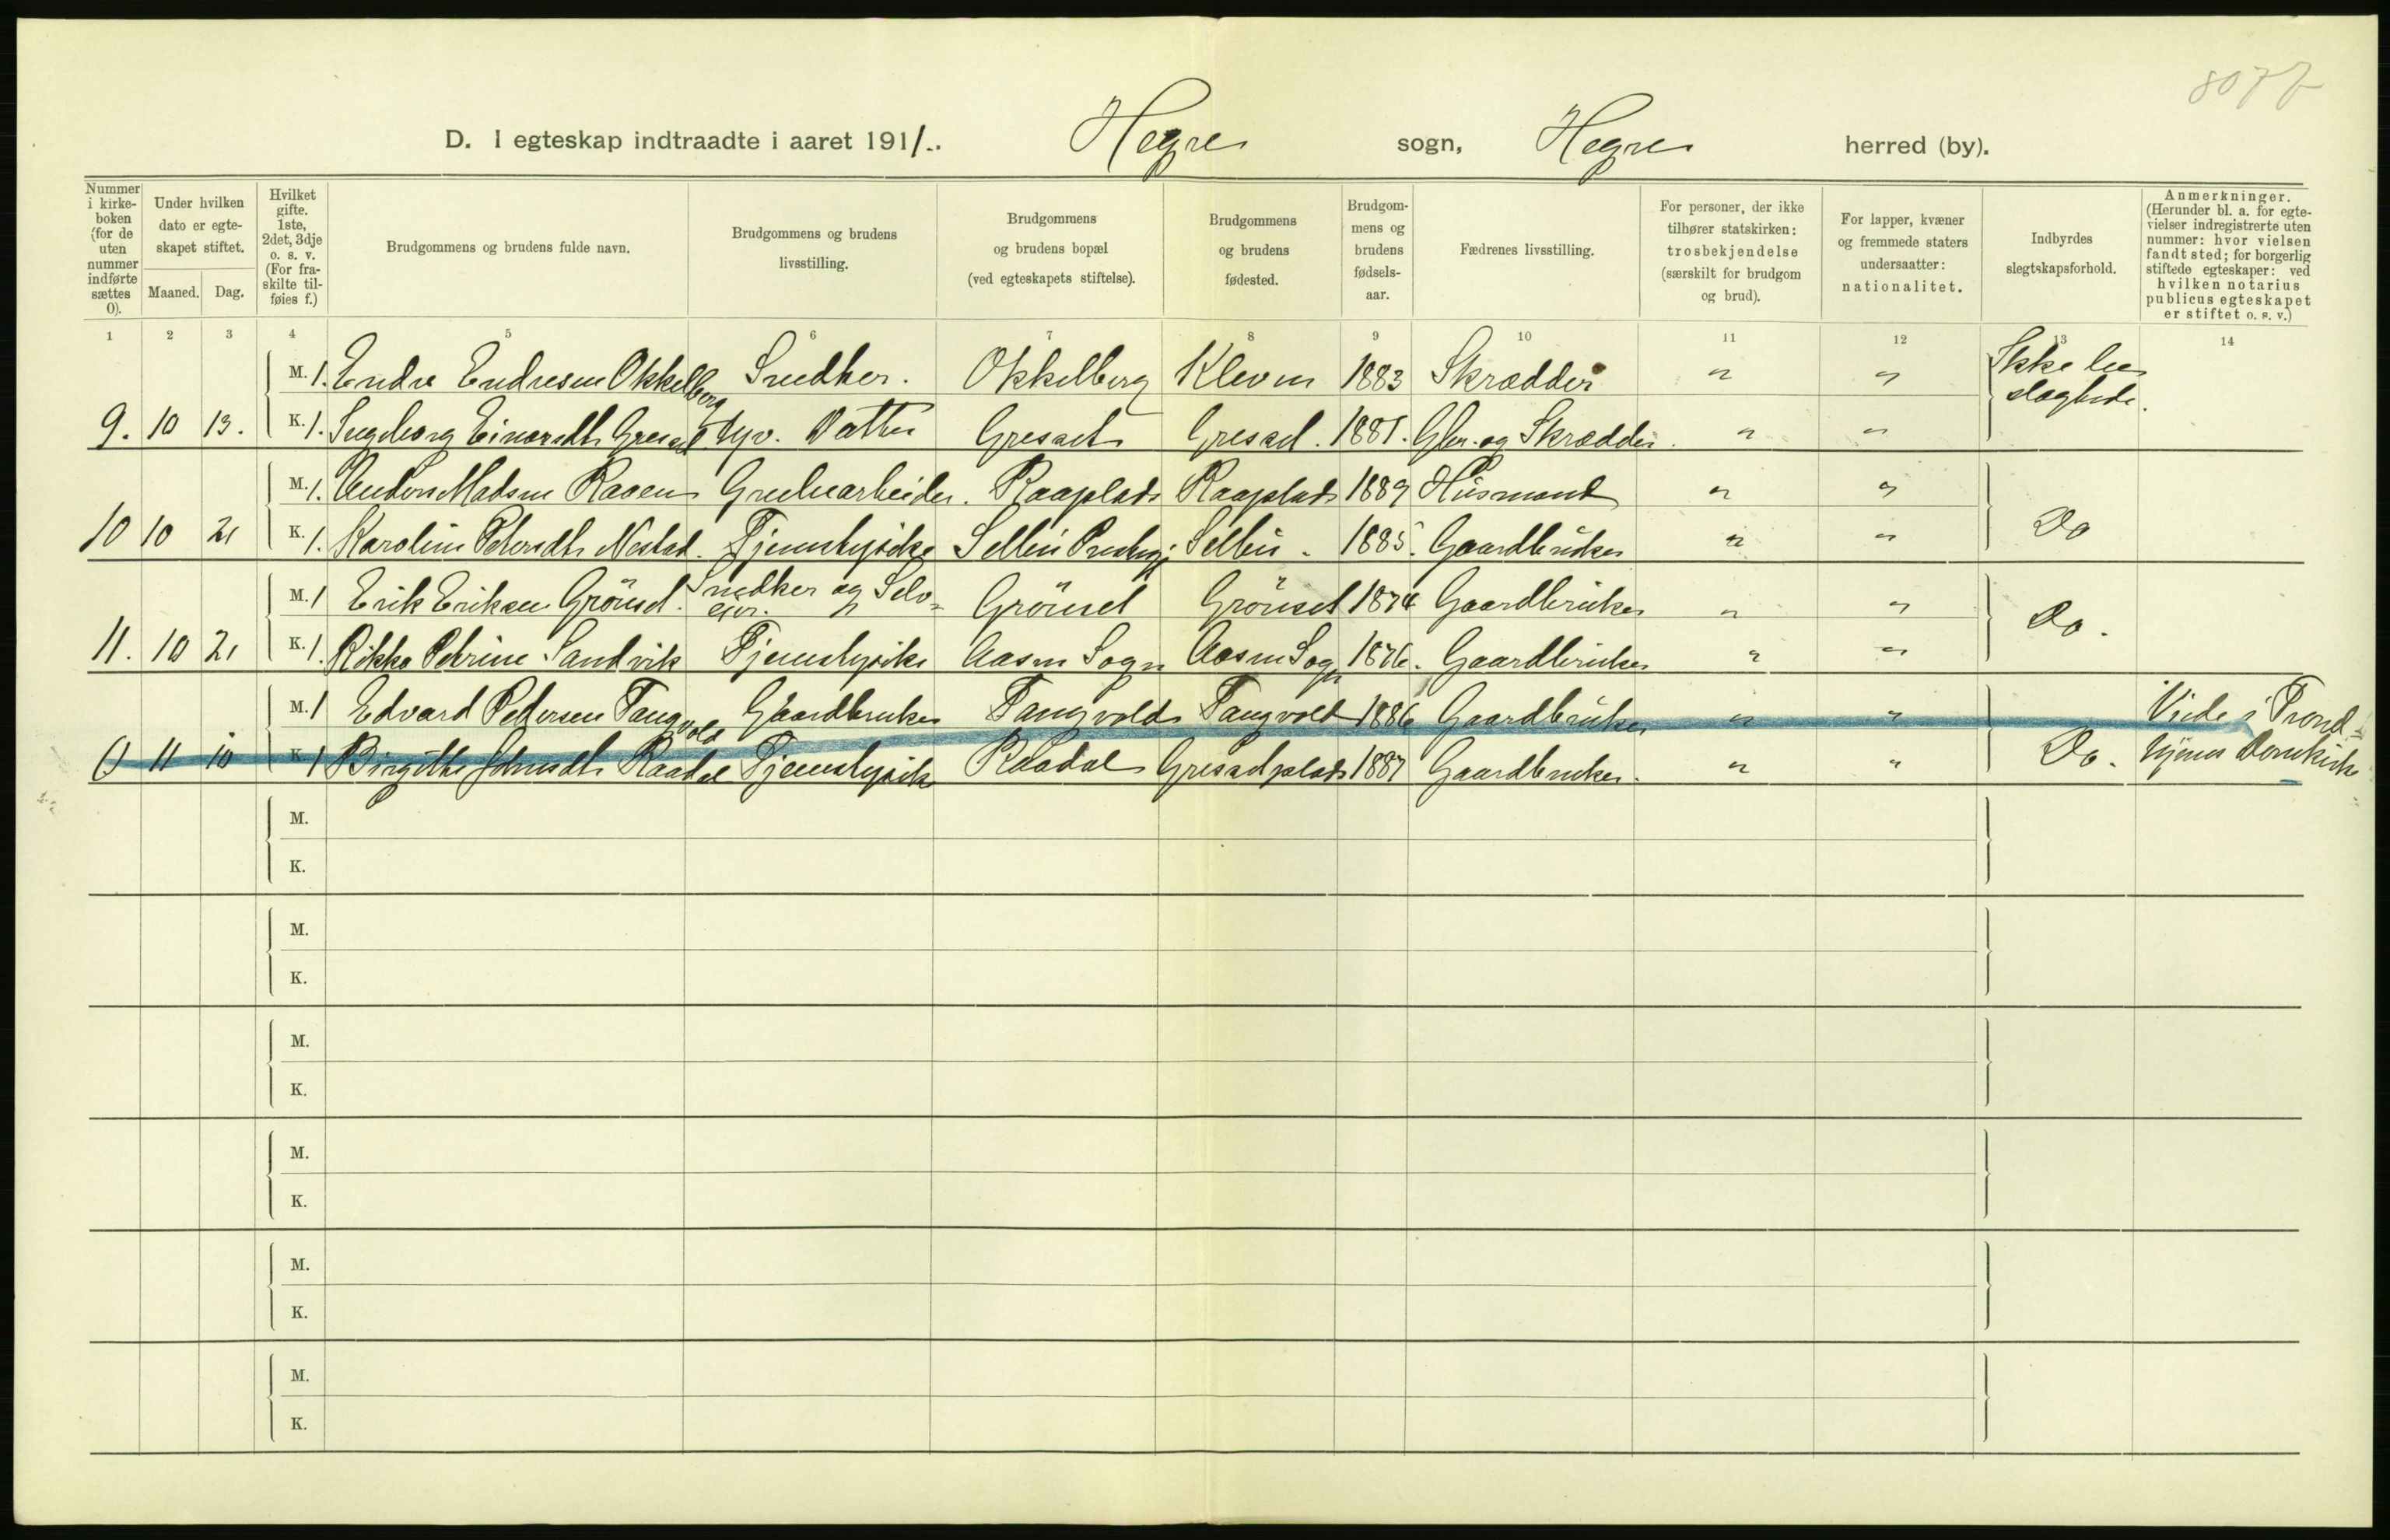 8077
D. I egteskap indtraadte i aaret 1911. Hegre sogn, Hegre herred (by).
Nummer i kirkeboken (for de uten nummer indførte sættes 0).
Under hvilken dato er egteskapet stiftet.
Maaned. Dag.
Hvilket gifte. 1ste, 2det, 3dje o. s. v. (For fraskilte tilføies f.)
Brudgommens og brudens fulde navn.
Brudgommens og brudens livsstilling.
Brudgommens og brudens bopæl (ved egteskapets stiftelse).
Brudgommens og brudens fødested.
Brudgommens og brudens fødselsaar.
Fædrenes livsstilling.
For personer, der ikke tilhører statskirken: trosbekjendelse (særskilt for brudgom og brud).
For lapper, kvæner og fremmede staters undersaatter: nationalitet.
Indbyrdes slegtskapsforhold.
Anmerkninger. (Herunder bl. a. for egtevielser indregistrerte uten nummer: hvor vielsen fandt sted; for borgerlig stiftede egteskaper: ved hvilken notarius publicus egteskapet er stiftet o. s. v.)
1 2 3 4 5 6 7 8 9 10 11 12 13 14
M. 1. Endre Endresen Okkelberg Snedker. Okkelberg Kleven 1883 Skrædder " " Ikke beslægtede.
9. 10 13. K. 1. Ingeborg Einarsdtr Gresset Tyv. Datter Gresset Gresset. 1881. Gbr. og Skrædder. " "
M. 1. Anders Madsen Raaen Grubearbeider. Raaplads Raaplads 1889 Husmand " "
10 10 21 K. 1. Karoline Petersdtr Nestad. Tjenestepike Selbu Præstegj. Selbu. 1885. Gaardbruker " " Do
M. 1 Erik Eriksen Grönset. Snedker og Selveier. Grönset Grönset 1874 Gaardbruker " "
11. 10 21 K. 1. Rikka Petrine Sandvik Tjenestepike Aasen Sogn Aasen Sogn 1876. Gaardbruker " " Do.
M. 1 Edvard Petersen Tangvold Gaardbruker Tangvold Tangvold 1886 Gaardbruker " " Viede i Trondhjems Domkirke
0 11 10 K. 1 Birgitte Johnsdtr Raadal Tjenestepike Raadal Gressetplads 1887 Gaardbruker. " " Do.
M.
K.
M.
K.
M.
K.
M.
K.
M.
K.
M.
K.